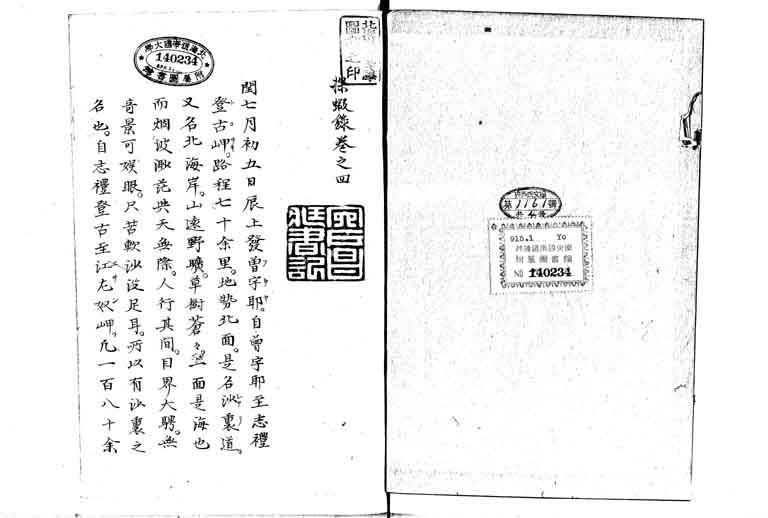 探蝦錄卷之四
閏七月初五日辰上發曾宇耶。自曾宇耶至志禮
登古岬。路程七十余里。地勢北面。是名沙裏道。
又名北海岸。山遠野曠。草樹蒼々。一面是海也
而烟波渺茫與天無際。人行其間。目界大騁。無
奇景可娛眼。只苦軟沙沒足耳。所以有沙裏之
名也。自志禮登古至江尤奴岬。凡一百八十余
北海道帝國大學
140234
附屬圖書館
第1161號
915.1 Yo
附屬圖書館
No 140234